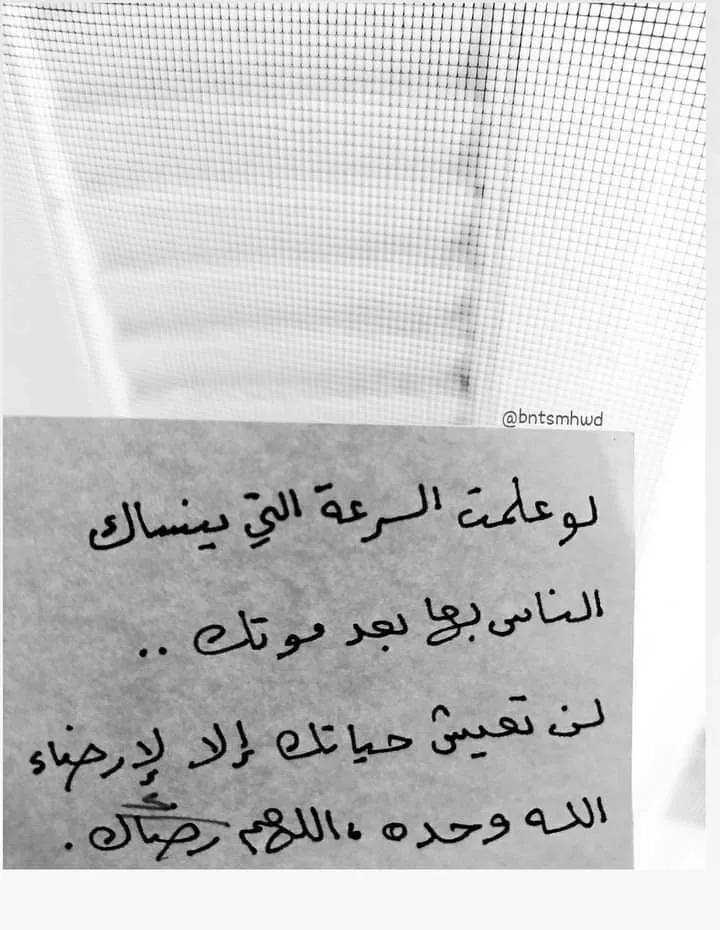 @bntsmhwd
لو علمت السرعة التي ينساك
الناس بها بعد موتك ..
لن تعيش حياتك إلا لإرضاء
الله وحده ، اللهم رضاك .